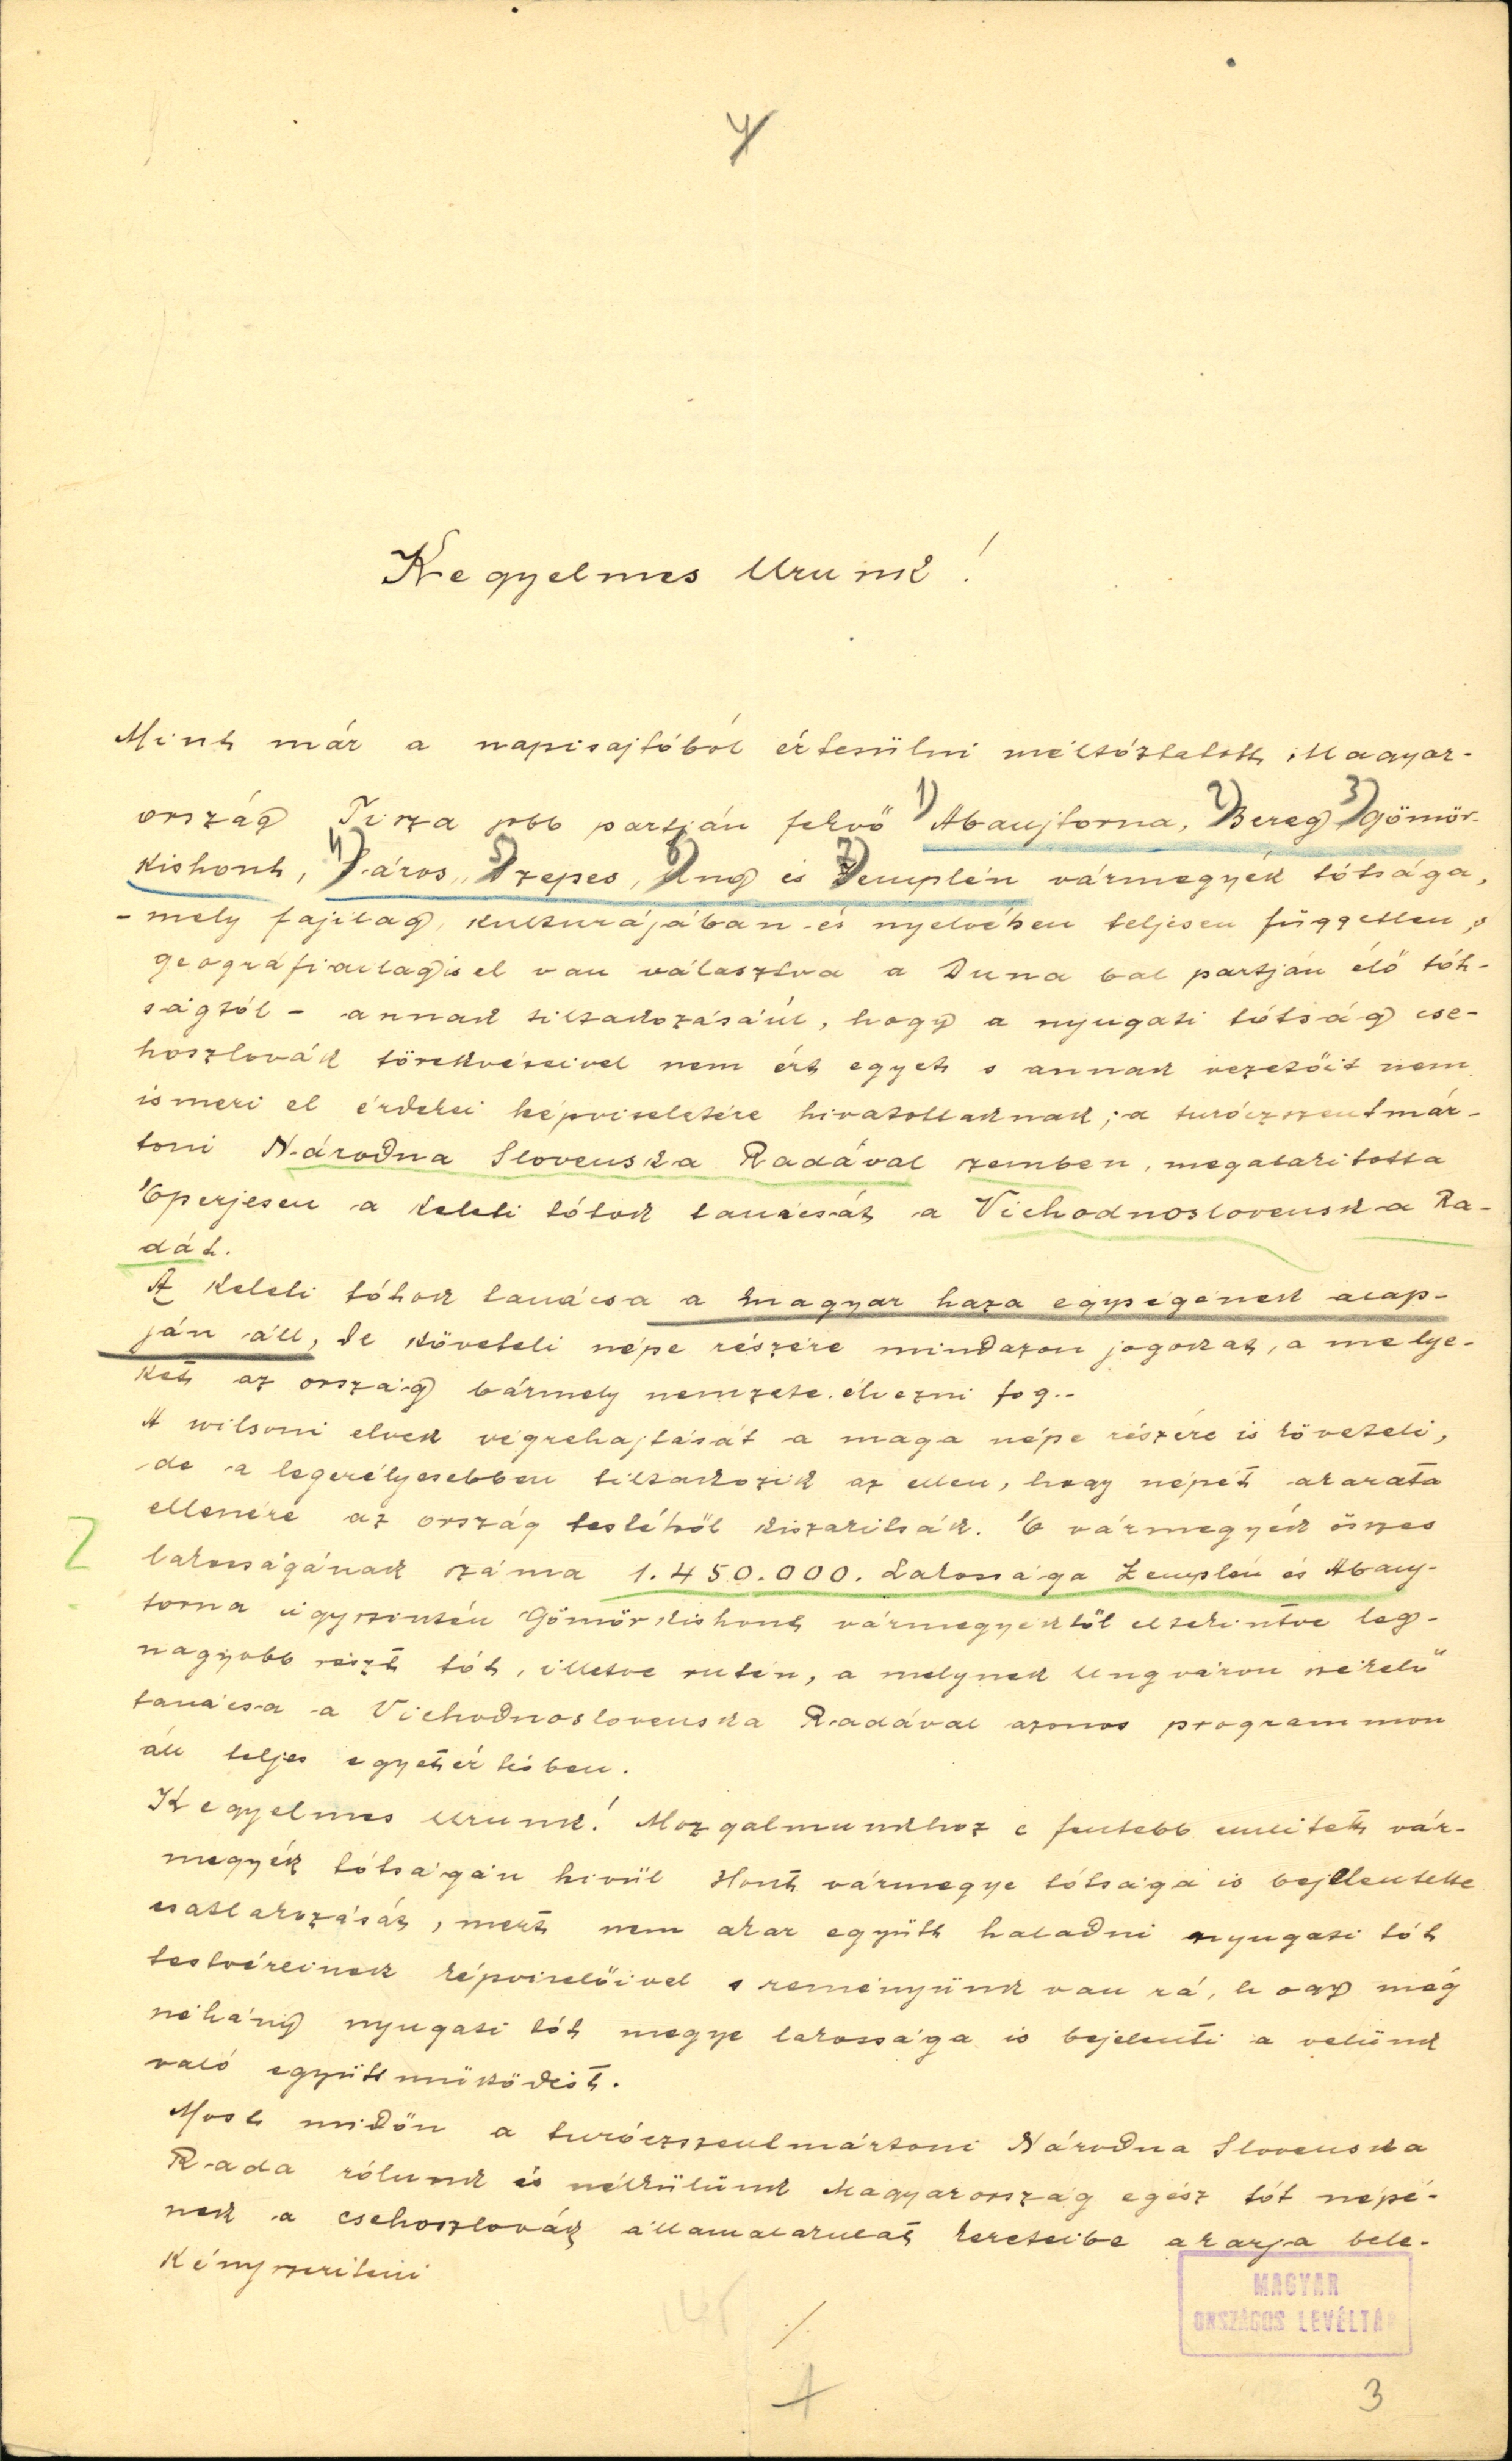 4
Kegyelmes Urunk!
Mint már a napisajtóból értesülni méltóztatott, Magyar-
ország Tisza jobb partján fekvő 1) Abaujtorna, 2) Bereg, 3) Gömör-
Kishont, 4) Sáros, 5) Szepes, 6) Ung és 7) Zemplén vármegyék tótsága,
- mely fajilag, kulturájában és nyelvében teljesen független, s
geográfiailag is el van választva a Duna bal partján élő tót-
ságtól - annak tiltakozásáúl, hogy a nyugati tótság cse-
hoszlovák törekvéseivel nem ért egyet s annak vezetőit nem
ismeri el érdekei képviseletére hivatottaknak; a turóczszentmár-
toni Národna Slovenska Radával szemben, megalakitotta
Eperjesen a keleti tótok tanácsát a Vichodnoslovenska Ra-
dát.
A keleti tótok tanácsa a magyar haza egységének alap-
ján áll, de követeli népe részére mindazon jogokat, a melye-
ket az ország bármely nemzete élvezni fog..
A wilsoni elvek végrehajtását a maga népe részére is követeli,
de a legerélyesebben tiltakozik az ellen, hogy népét akarata
ellenére az ország testéből kiszakitsák. E vármegyék összes
lakosságának száma 1.450.000. Lakossága Zemplén és Abauj-
torna úgyszintén Gömörkishont vármegyéktől eltekintve leg-
nagyobb részt tót, illetve rutén, a melynek Ungváron székelő
tanácsa a Vichodnoslovenska Radával azonos programmon
áll teljes egyetértésben.
Kegyelmes Urunk! Mozgalmunkhoz e fentebb emlitett vár-
megyék tótságán kivül Hont vármegye tótsága is bejelentette
csatlakozását, mert nem akar együtt haladni nyugati tót
testvéreinek képviselőivel s reményünk van rá, hogy még
néhány nyugati tót megye lakossága is bejelenti a velünk
való együttmüködést.
Most midőn a turóczszentmártoni Národna Slovenska
Rada rólunk és nélkülünk Magyarország egész tót népé-
nek a csehoszlovák államalakulat kereteibe akarja bele-
kényszeriteni
./.
MAGYAR
ORSZÁGOS LEVÉLTÁR
3